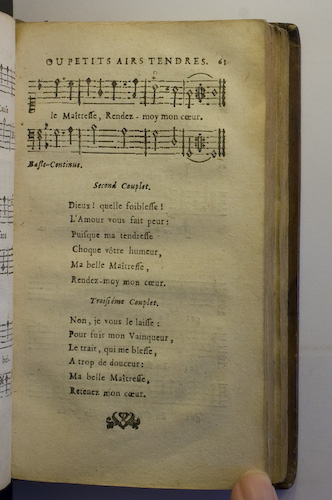 OU PETITS AIRS TENDRES. 61
le Maîtresse, Rendez - moy mon cœur.
Basse-Continue.
Second Couplet.
Dieux! quelle foiblesse!
L'Amour vous fait peur:
Puisque ma tendresse
Choque vôtre humeur,
Ma belle Maîtresse,
Rendez-moy mon cœur.
Troisiéme Couplet.
Non, je vous le laisse:
Pour suis mon Vainqueur,
Le trait, qui me blesse,
A trop de douceur:
Ma belle Maîtresse,
Retenez mon cœur.